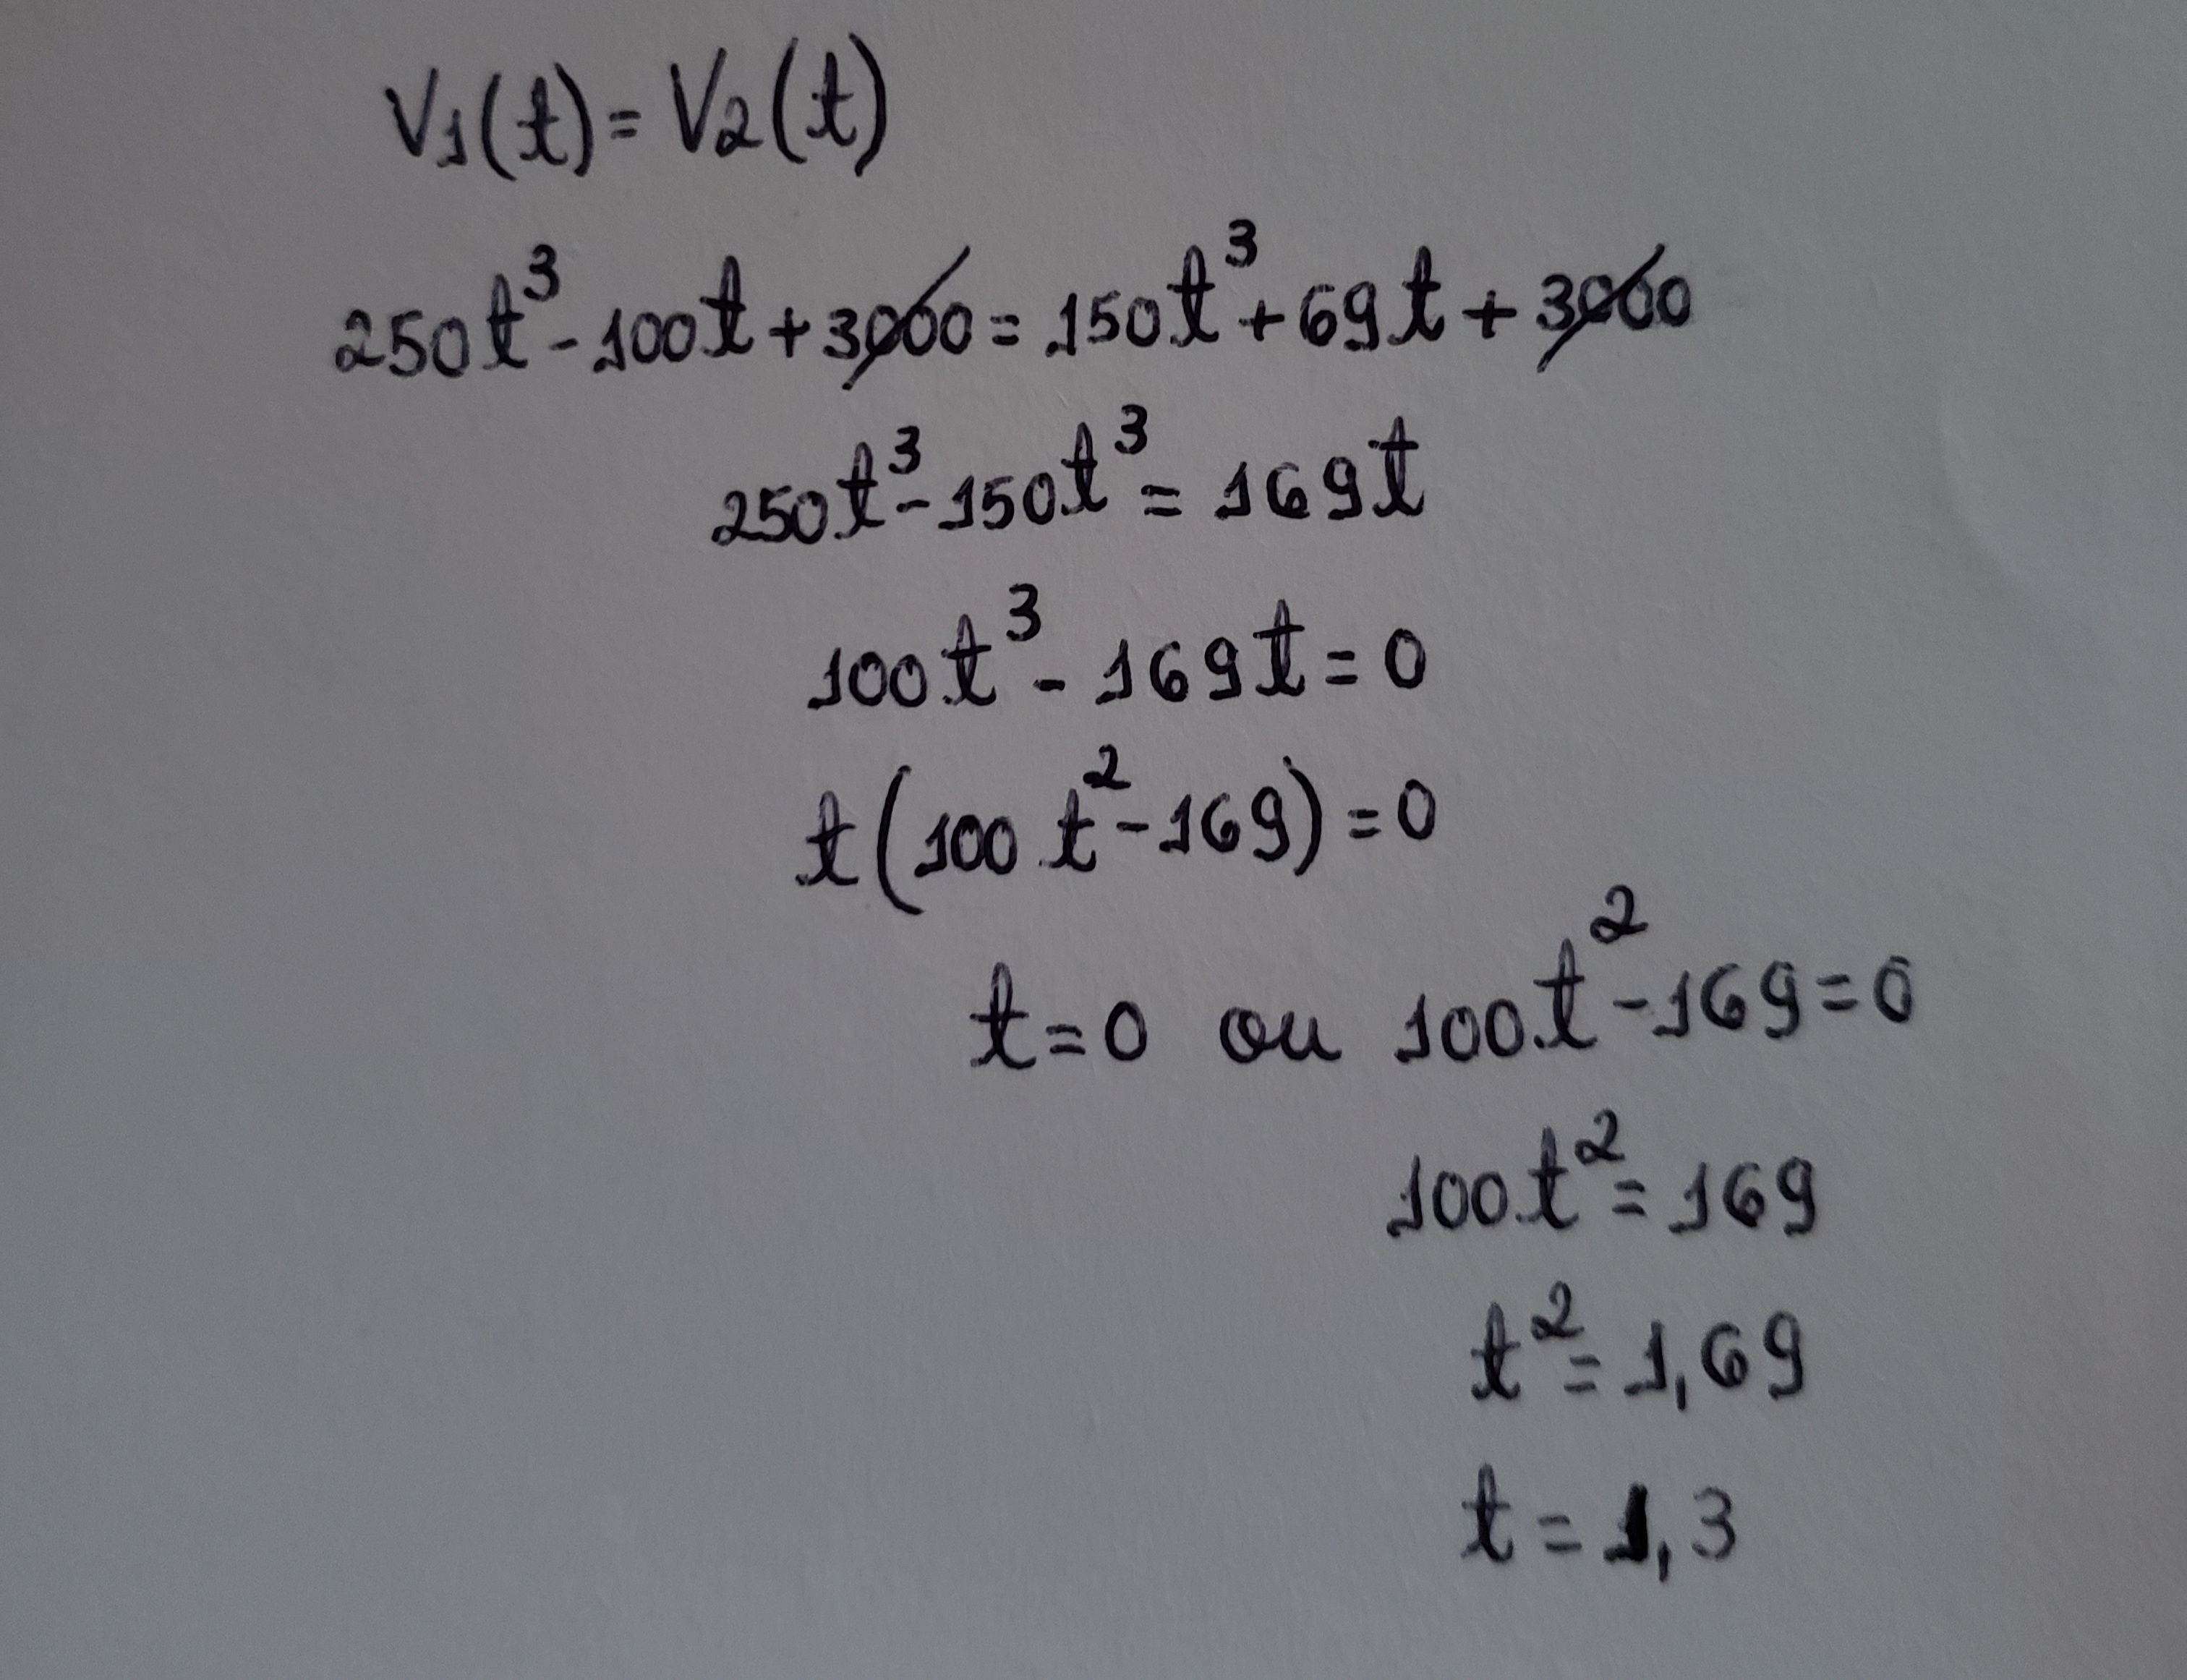 V₁(t) = V₂(t)
250t³ - 100t + 3000 = 150t³ + 69t + 3000
250t³ - 150t³ = 169t
100t³ - 169t = 0
t(100t² - 169) = 0
t = 0 ou 100t² - 169 = 0
100t² = 169
t² = 1,69
t = 1,3